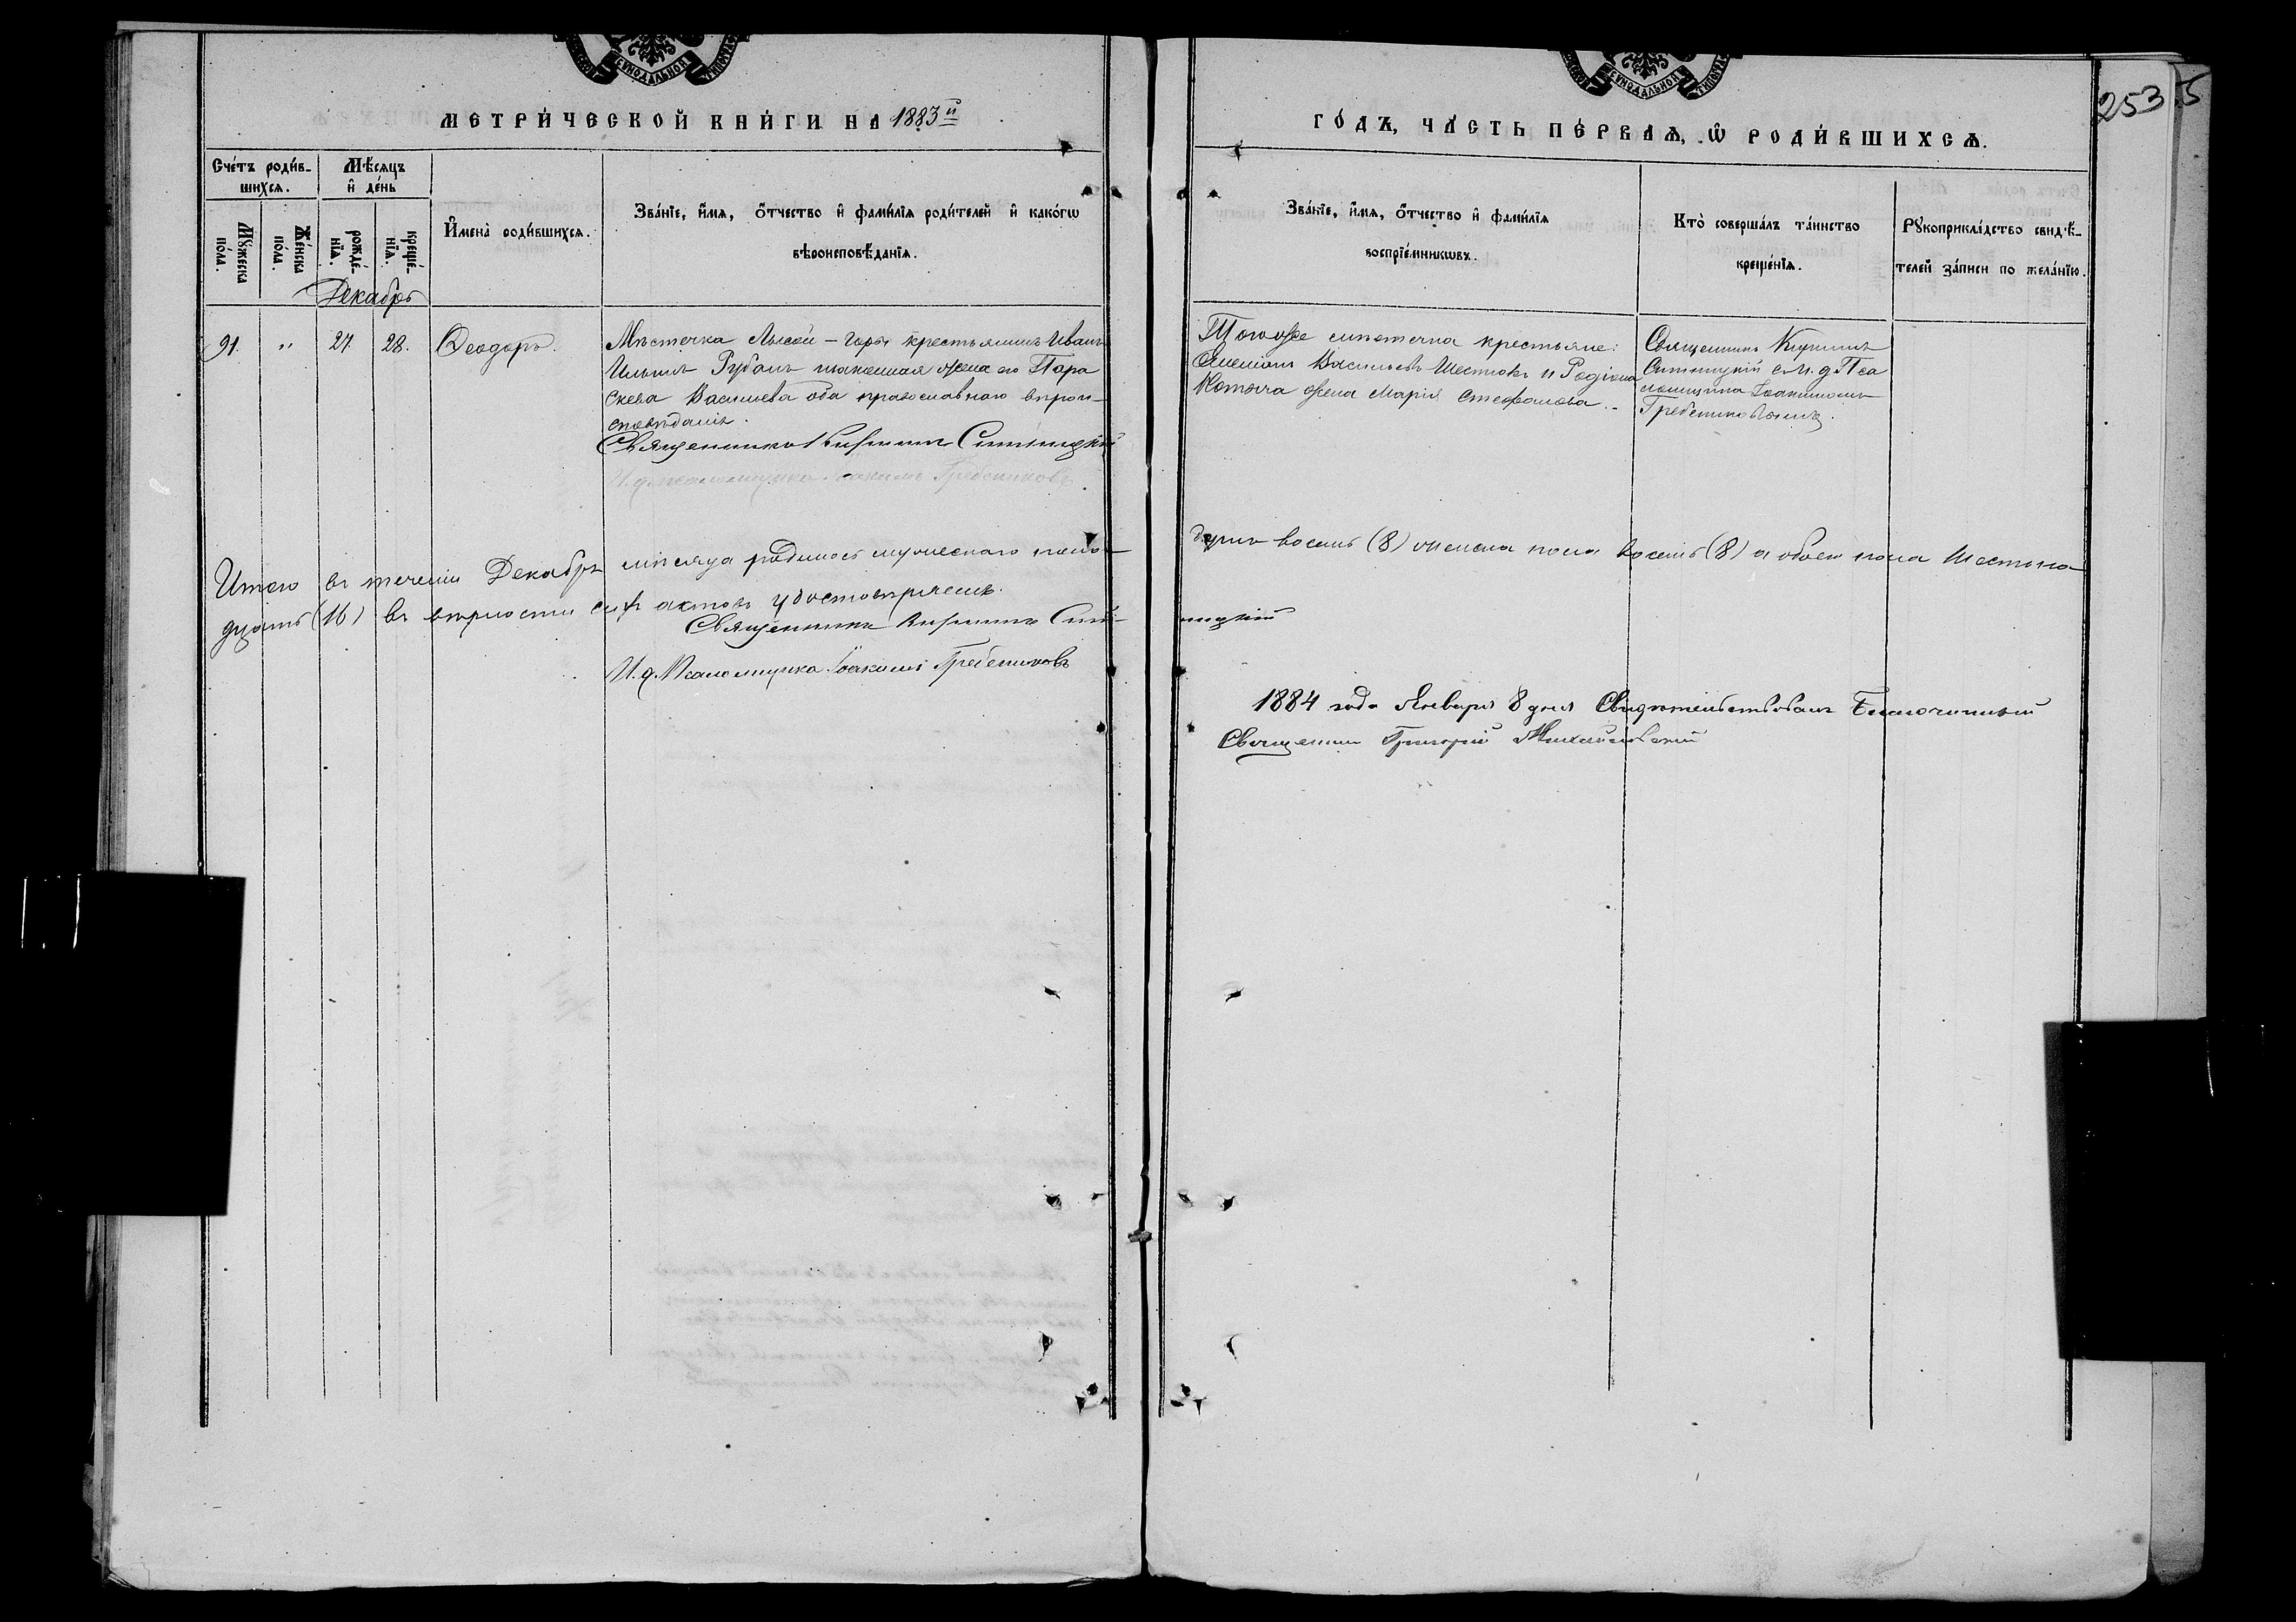 СѴНОДАЛЬНОЙ
СѴНОДАЛЬНОЙ
253
5
МЕТРИ́ЧЕСКОЙ КНИ́ГИ НА 1883й
ГО́ДЪ, ЧА́СТЬ ПЕ́РВАѦ, Ѽ РОДИ́ВШИХСѦ.
Сче́тъ роди́в-
шихсѧ.
Мѣ́сѧцъ
и҆ де́нь
Мꙋ́жеска
по́ла.
Же́нска
по́ла.
рожде́-
нїѧ.
креще́-
нїѧ.
И҆мена̀ роди́вшихсѧ.
Зва́нїе, и҆́мѧ, ѻ҆́тчество и҆ фами́лїѧ роди́телей и҆ како́гѡ
вѣроисповѣ́данїѧ.
Зва́нїе, и҆́мѧ, ѻ҆́тчество и҆ фами́лїѧ
воспрїе́мникѡвъ.
Кто̀ соверша́лъ та́инство
креще́нїѧ.
Рꙋкоприкла́дство свидѣ́-
телей за́писи по жела́нїю.
Декабрь
91.
"
27
28.
Ѳеодоръ.
Мѣстечка Лысой-Горы крестьянинъ Иванъ
Ильинъ Рубанъ законная жена его Пара
скева Васильева оба православного вѣрои-
споведанія.
Священникъ Кириллъ Синицкій
И. д. псаломщика Іоакимъ Гребениковъ
Тогоже мѣстечка крестьяне:
Симеонъ Васильевъ Шестокъ и Родіона
жена Марія Стефанова.-
Священникъ Кириллъ
Синицкій с И. д. Пса
ломщика Іоакимомъ
Гребениковымъ.
Итого въ теченіи Декабря мѣсяца родилось мужескаго пола
душъ восемь (8) женска пола восемь (8) а обоего пола шестьна
дцать (16) въ вѣрности сихъ актовъ удостовѣряемъ.
Священникъ Кириллъ Сини-
ицкій
И. д. Псаломщика Іоакимъ Гребениковъ
1884 года Января 8 дня Свидѣтельствовалъ Благочинный
Священникъ Григорій Михайловскій